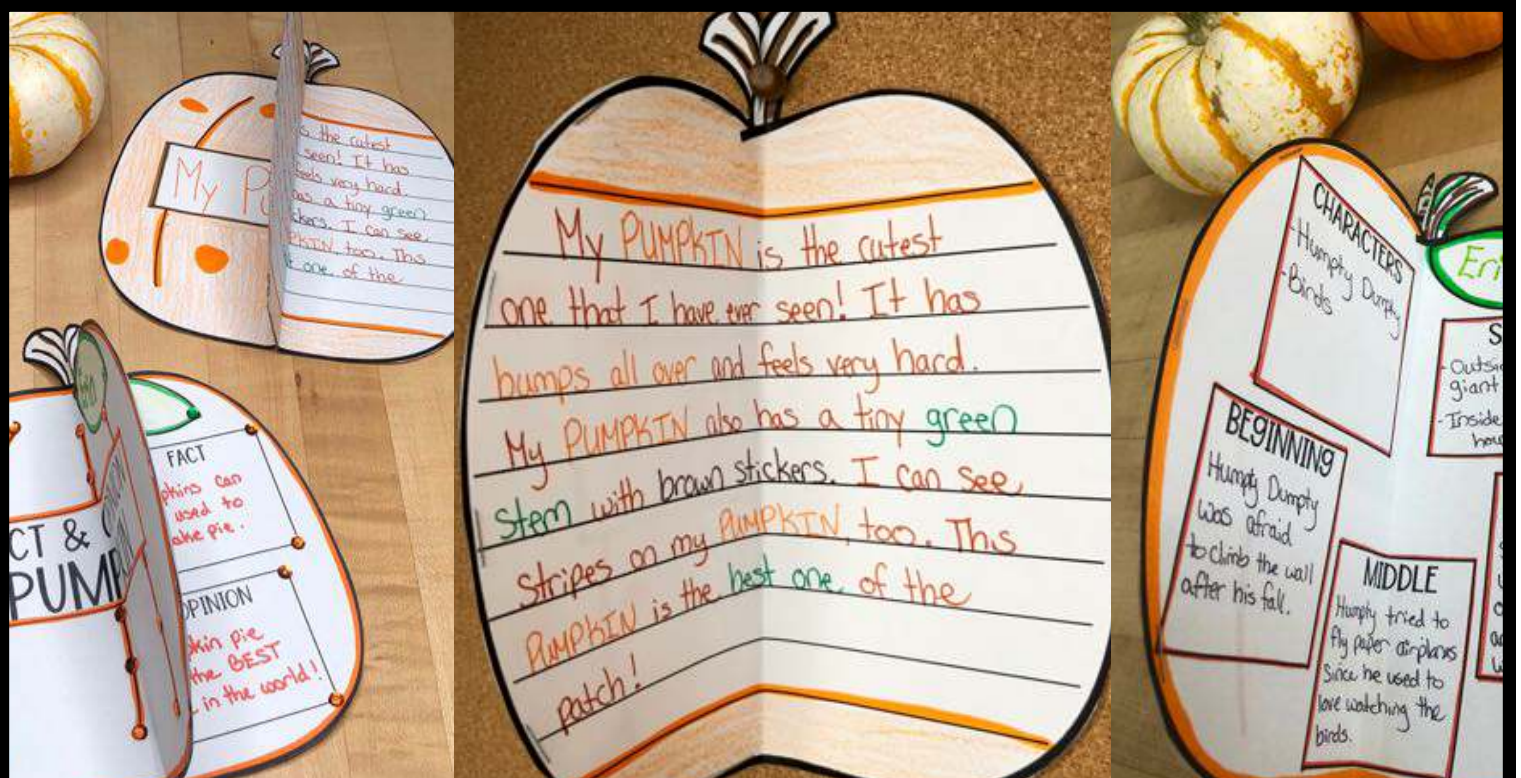 My P
s the cutest
seen! It has
feels very hard.
has a tiny green
ckers. I can see
PKIN, too. This
t one of the
Erin
FACT
pkins can
used to
ake pie.
CT &
PUMP
OPINION
kin pie
the BEST
in the world!
My PUMPKIN is the cutest
one that I have ever seen! It has
bumps all over and feels very hard.
My PUMPKIN also has a tiny green
stem with brown stickers. I can see
stripes on my PUMPKIN, too. This
PUMPKIN is the best one of the
patch!
CHARACTERS
-Humpty Dumpty
-Birds
Eri
S
-Outsi
giant
-Inside
hou
BEGINNING
Humpty Dumpty
was afraid
to climb the wall
after his fall.
MIDDLE
Humpty tried to
fly paper airplanes
since he used to
love watching the
birds.